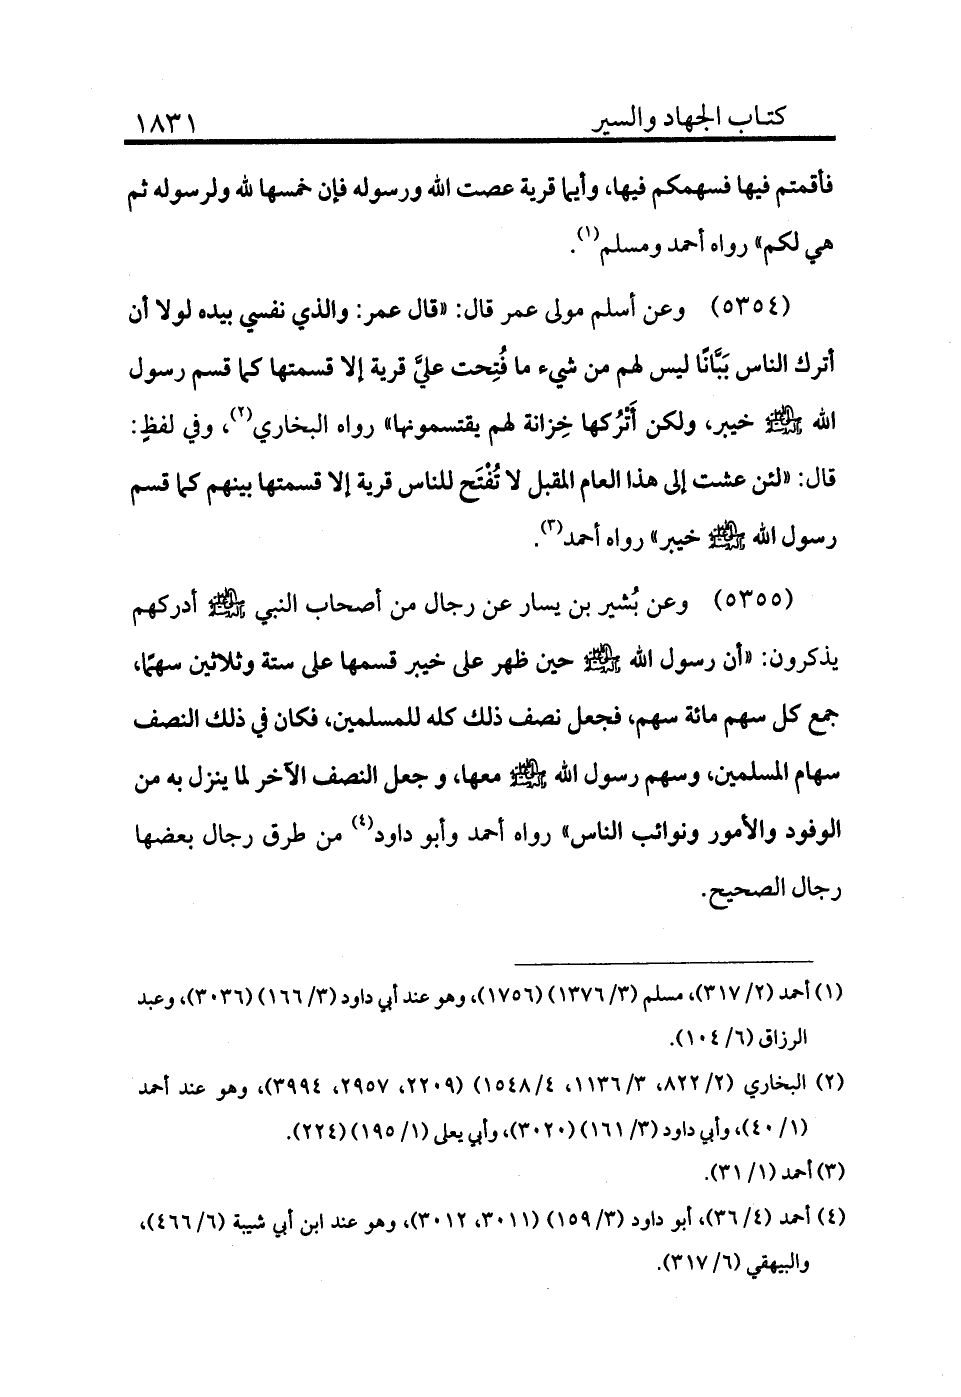 كتاب الجهاد والسير
١٨٣١
فأقمتم فيها فسهمكم فيها، وأيما قرية عصت الله ورسوله فإن خمسها لله ولرسوله ثم
هي لكم» رواه أحمد ومسلم(١).
(٥٣٥٤) وعن أسلم مولى عمر قال: «قال عمر: والذي نفسي بيده لولا أن
أترك الناس بَبَّانًا ليس لهم من شيء ما فُتِحت عليَّ قرية إلا قسمتها كما قسم رسول
الله ﷺ خيبر، ولكن أَتْرُكها خِزانة لهم يقتسمونها» رواه البخاري(٢)، وفي لفظٍ:
قال: «لئن عشت إلى هذا العام المقبل لا تُفْتَح للناس قرية إلا قسمتها بينهم كما قسم
رسول الله ﷺ خيبر» رواه أحمد(٣).
(٥٣٥٥) وعن بُشير بن يسار عن رجال من أصحاب النبي ﷺ أدركهم
يذكرون: «أن رسول الله ﷺ حين ظهر على خيبر قسمها على ستة وثلاثين سهمًا،
جمع كل سهم مائة سهم، فجعل نصف ذلك كله للمسلمين، فكان في ذلك النصف
سهام المسلمين، وسهم رسول الله ﷺ معها، و جعل النصف الآخر لما ينزل به من
الوفود والأمور ونوائب الناس» رواه أحمد وأبو داود(٤) من طرق رجال بعضها
رجال الصحيح.
(١) أحمد (٢/ ٣١٧)، مسلم (٣/ ١٣٧٦) (١٧٥٦)، وهو عند أبي داود (٣/ ١٦٦) (٣٠٣٦)، وعبد
الرزاق (٦/ ١٠٤).
(٢) البخاري (٢/ ٨٢٢، ٣/ ١١٣٦، ٤/ ١٥٤٨) (٢٢٠٩، ٢٩٥٧، ٣٩٩٤)، وهو عند أحمد
(١/ ٤٠)، وأبي داود (٣/ ١٦١) (٣٠٢٠)، وأبي يعلى (١/ ١٩٥) (٢٢٤).
(٣) أحمد (١/ ٣١).
(٤) أحمد (٤/ ٣٦)، أبو داود (٣/ ١٥٩) (٣٠١١، ٣٠١٢)، وهو عند ابن أبي شيبة (٦/ ٤٦٦)،
والبيهقي (٦/ ٣١٧).